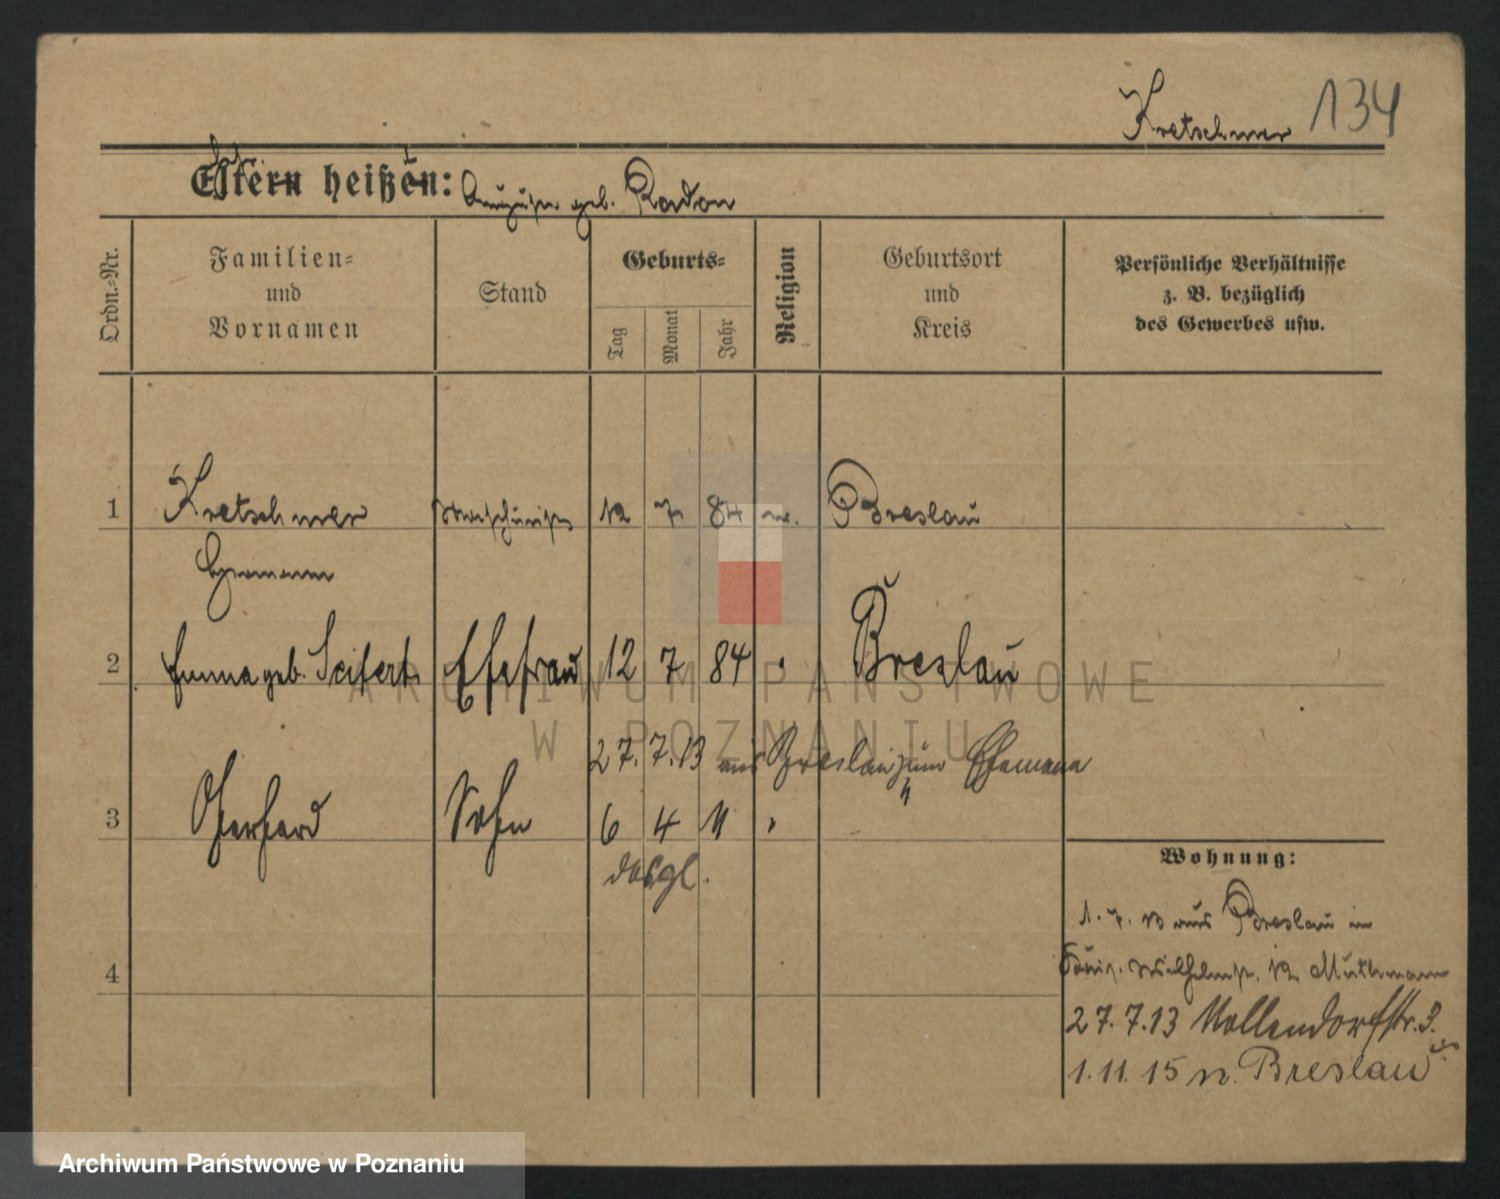 Kretschmer 134
Eltern heißen: geb. Radon
Ordn.-Nr.
Familien-
und
Vornamen
Stand
Geburts-
Tag
Monat
Jahr
Religion
Geburtsort
und
Kreis
Persönliche Verhältnisse
z. B. bezüglich
des Gewerbes usw.
1 Kretschmer 12 7 84 Breslau
Hermann
2 Emma geb. Seifert Ehefrau 12 7 84 Breslau
27.7.13 aus Breslau zum Ehemann
3 Gerhard Sohn 6 4 11 "
desgl.
4
Wohnung:
1.7.13 aus Breslau in
Wilhelmstr. 12 Muthmann
27.7.13 Nollendorfstr. 3.
1.11.15 n. Breslau
ARCHIWUM PAŃSTWOWE
W POZNANIU
Archiwum Państwowe w Poznaniu